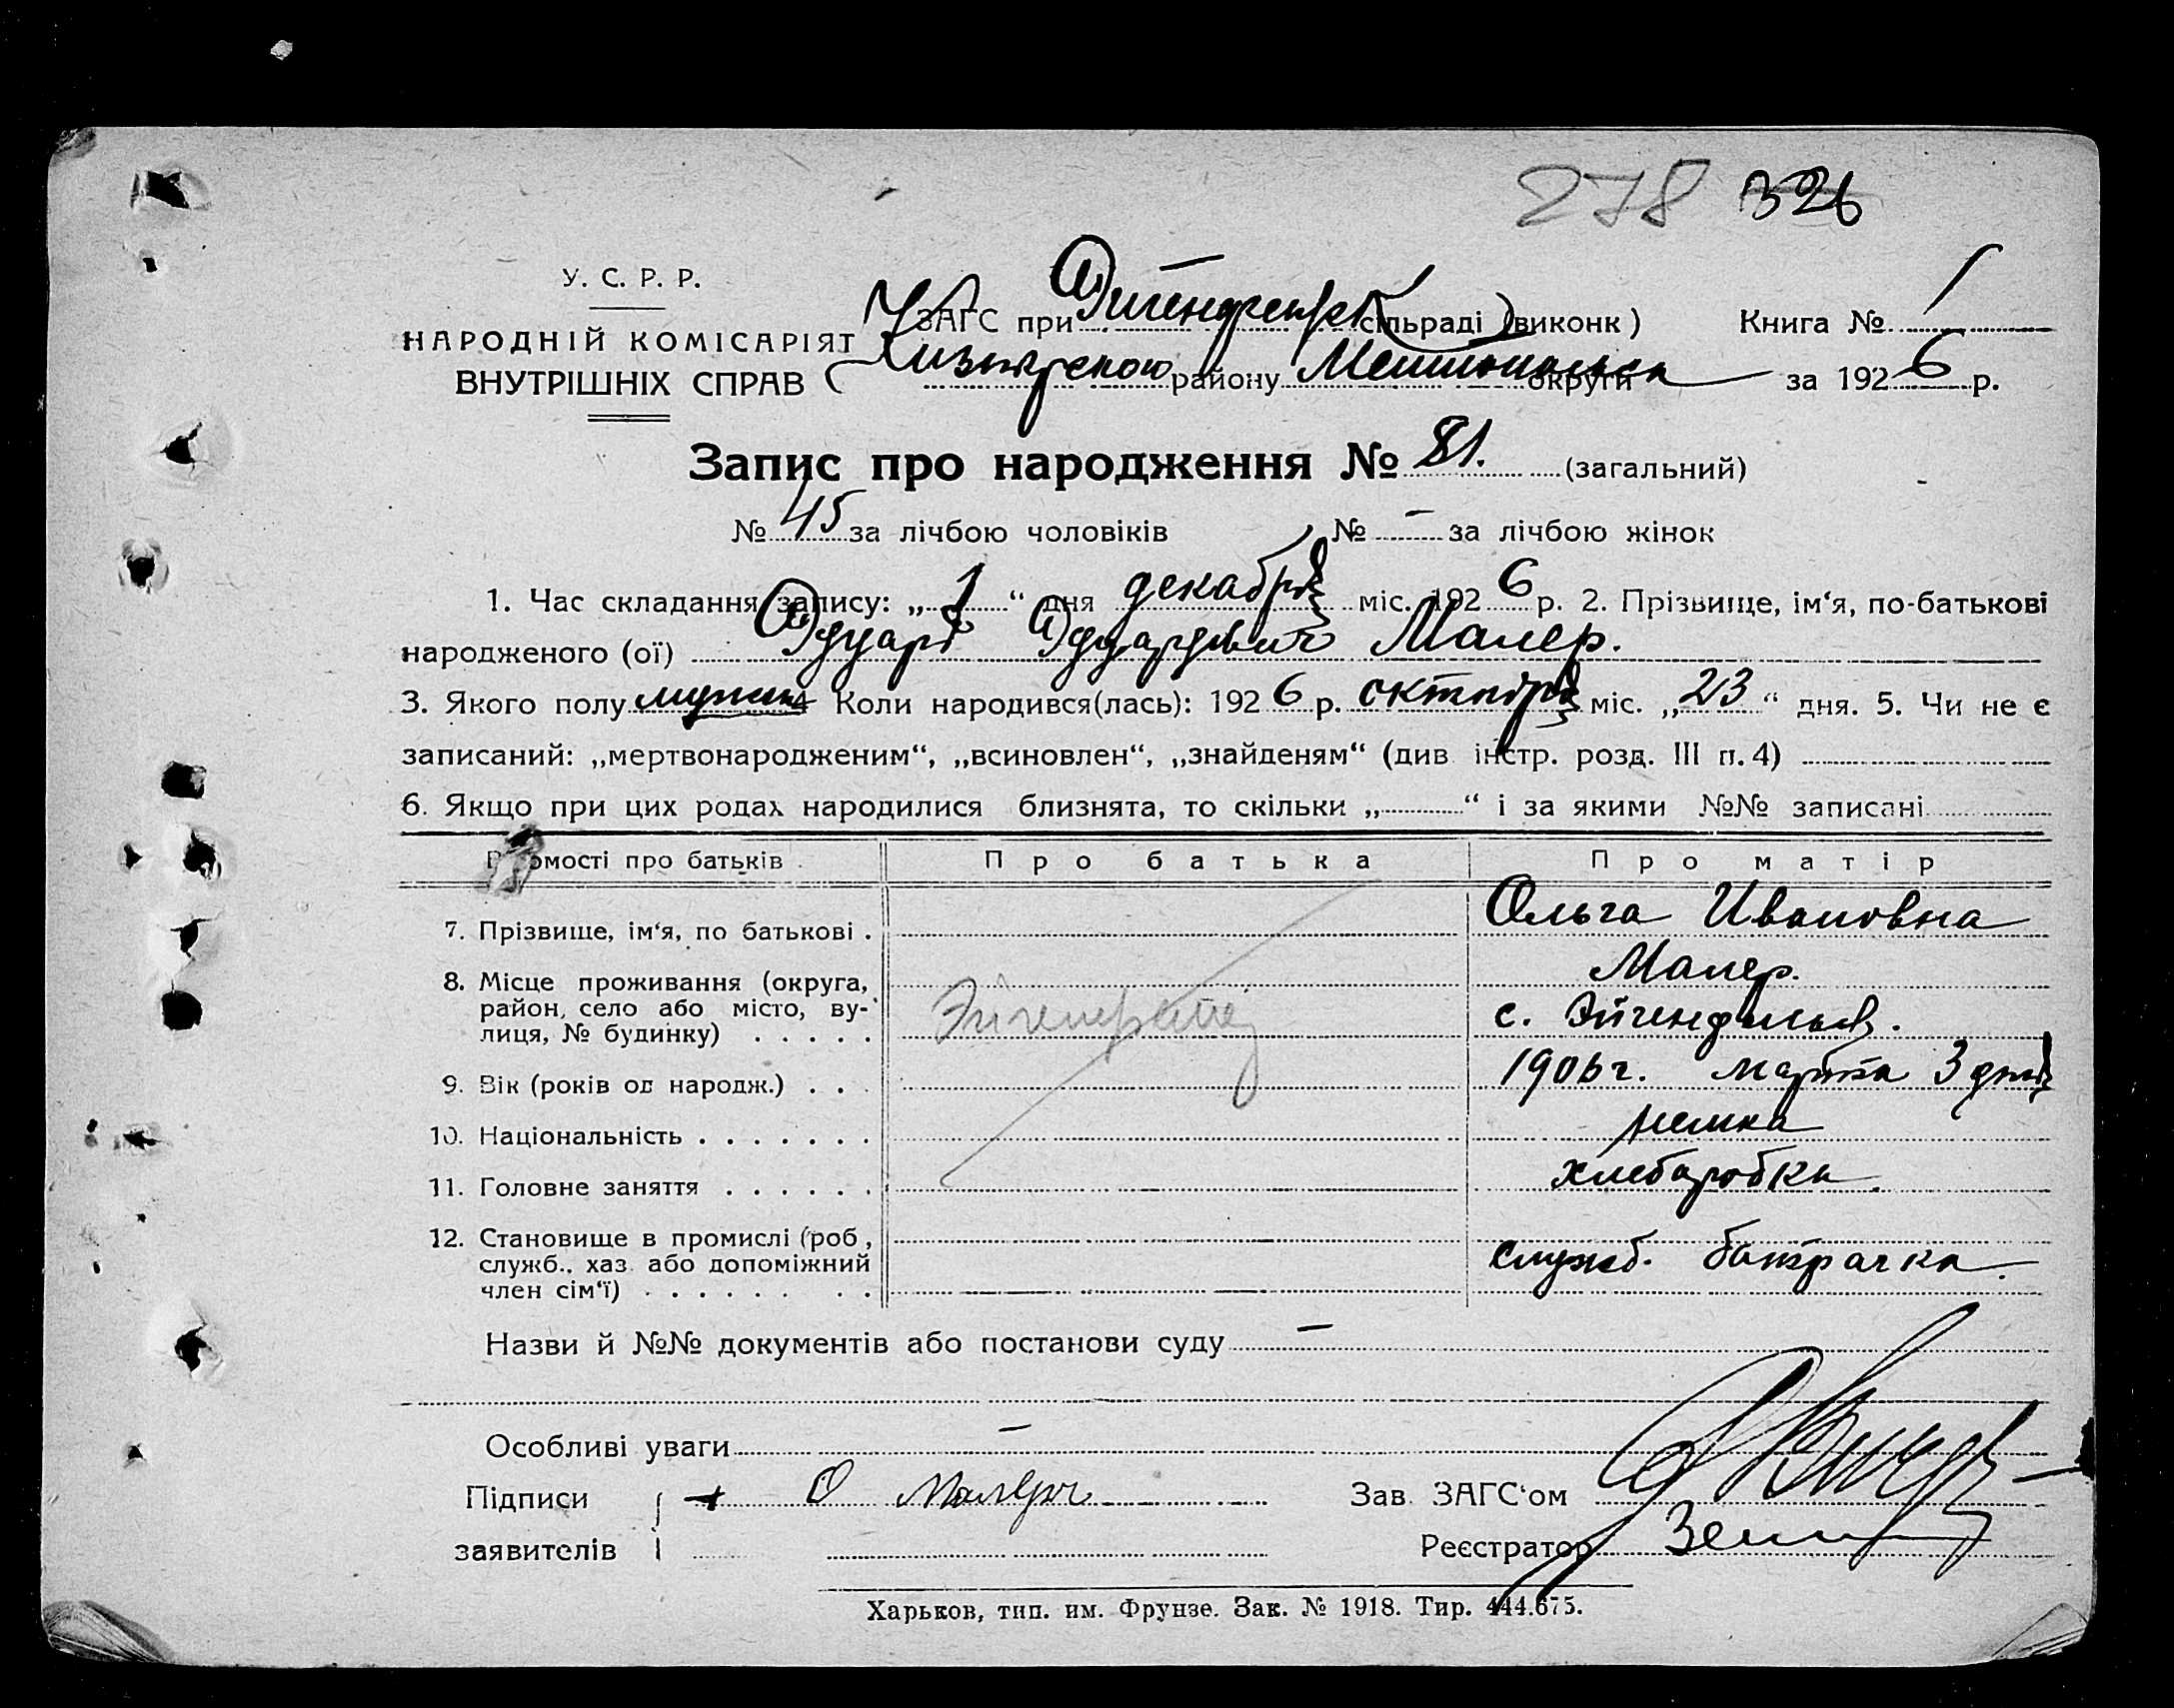 278 326
У. С. Р. Р.
НАРОДНІЙ КОМІСАРІЯТ
ВНУТРІШНІХ СПРАВ
ЗАГС при сільраді (виконк) Книга № 1
району округи за 1926 р.
Запис про народження № 81. (загальний)
№ 45 за лічбою чоловіків № — за лічбою жінок
1. Час складання запису: „1“ дня декабря міс. 1926 р. 2. Прізвище, ім‘я, по-батькові
народженого (ої) Эдуард Эдуардович Малер.
3. Якого полу мужск 4 Коли народився(лась): 1926 р. октября міс. „23“ дня. 5. Чи не є
записаний: „мертвонародженим“, „всиновлен“, „знайденям“ (див інстр. розд. III п. 4)
6. Якщо при цих родах народилися близнята, то скільки „ “ і за якими №№ записані
Відомості про батьків Про батька Про матір
7. Прізвище, ім‘я, по батькові . Ольга Ивановна
Малер.
8. Місце проживання (округа, район, село або місто, вулиця, № будинку) . . . . . с. Эйгенфельд.
9. Вік (років од народж.) . . . 1906 г. марта 3 дня
10. Національність . . . . . . . немка
11. Головне заняття . . . . . . хлебаробка.
12. Становище в промислі (роб, служб., хаз. або допоміжний член сім‘ї) . . . . . . . . служб. батрачка.
Назви й №№ документів або постанови суду —
Особливі уваги —
Підписи + О Малер Зав. ЗАГС‘ом
заявителів Реєстратор
Харьков, тип. им. Фрунзе. Зак. № 1918. Тир. 444.675.